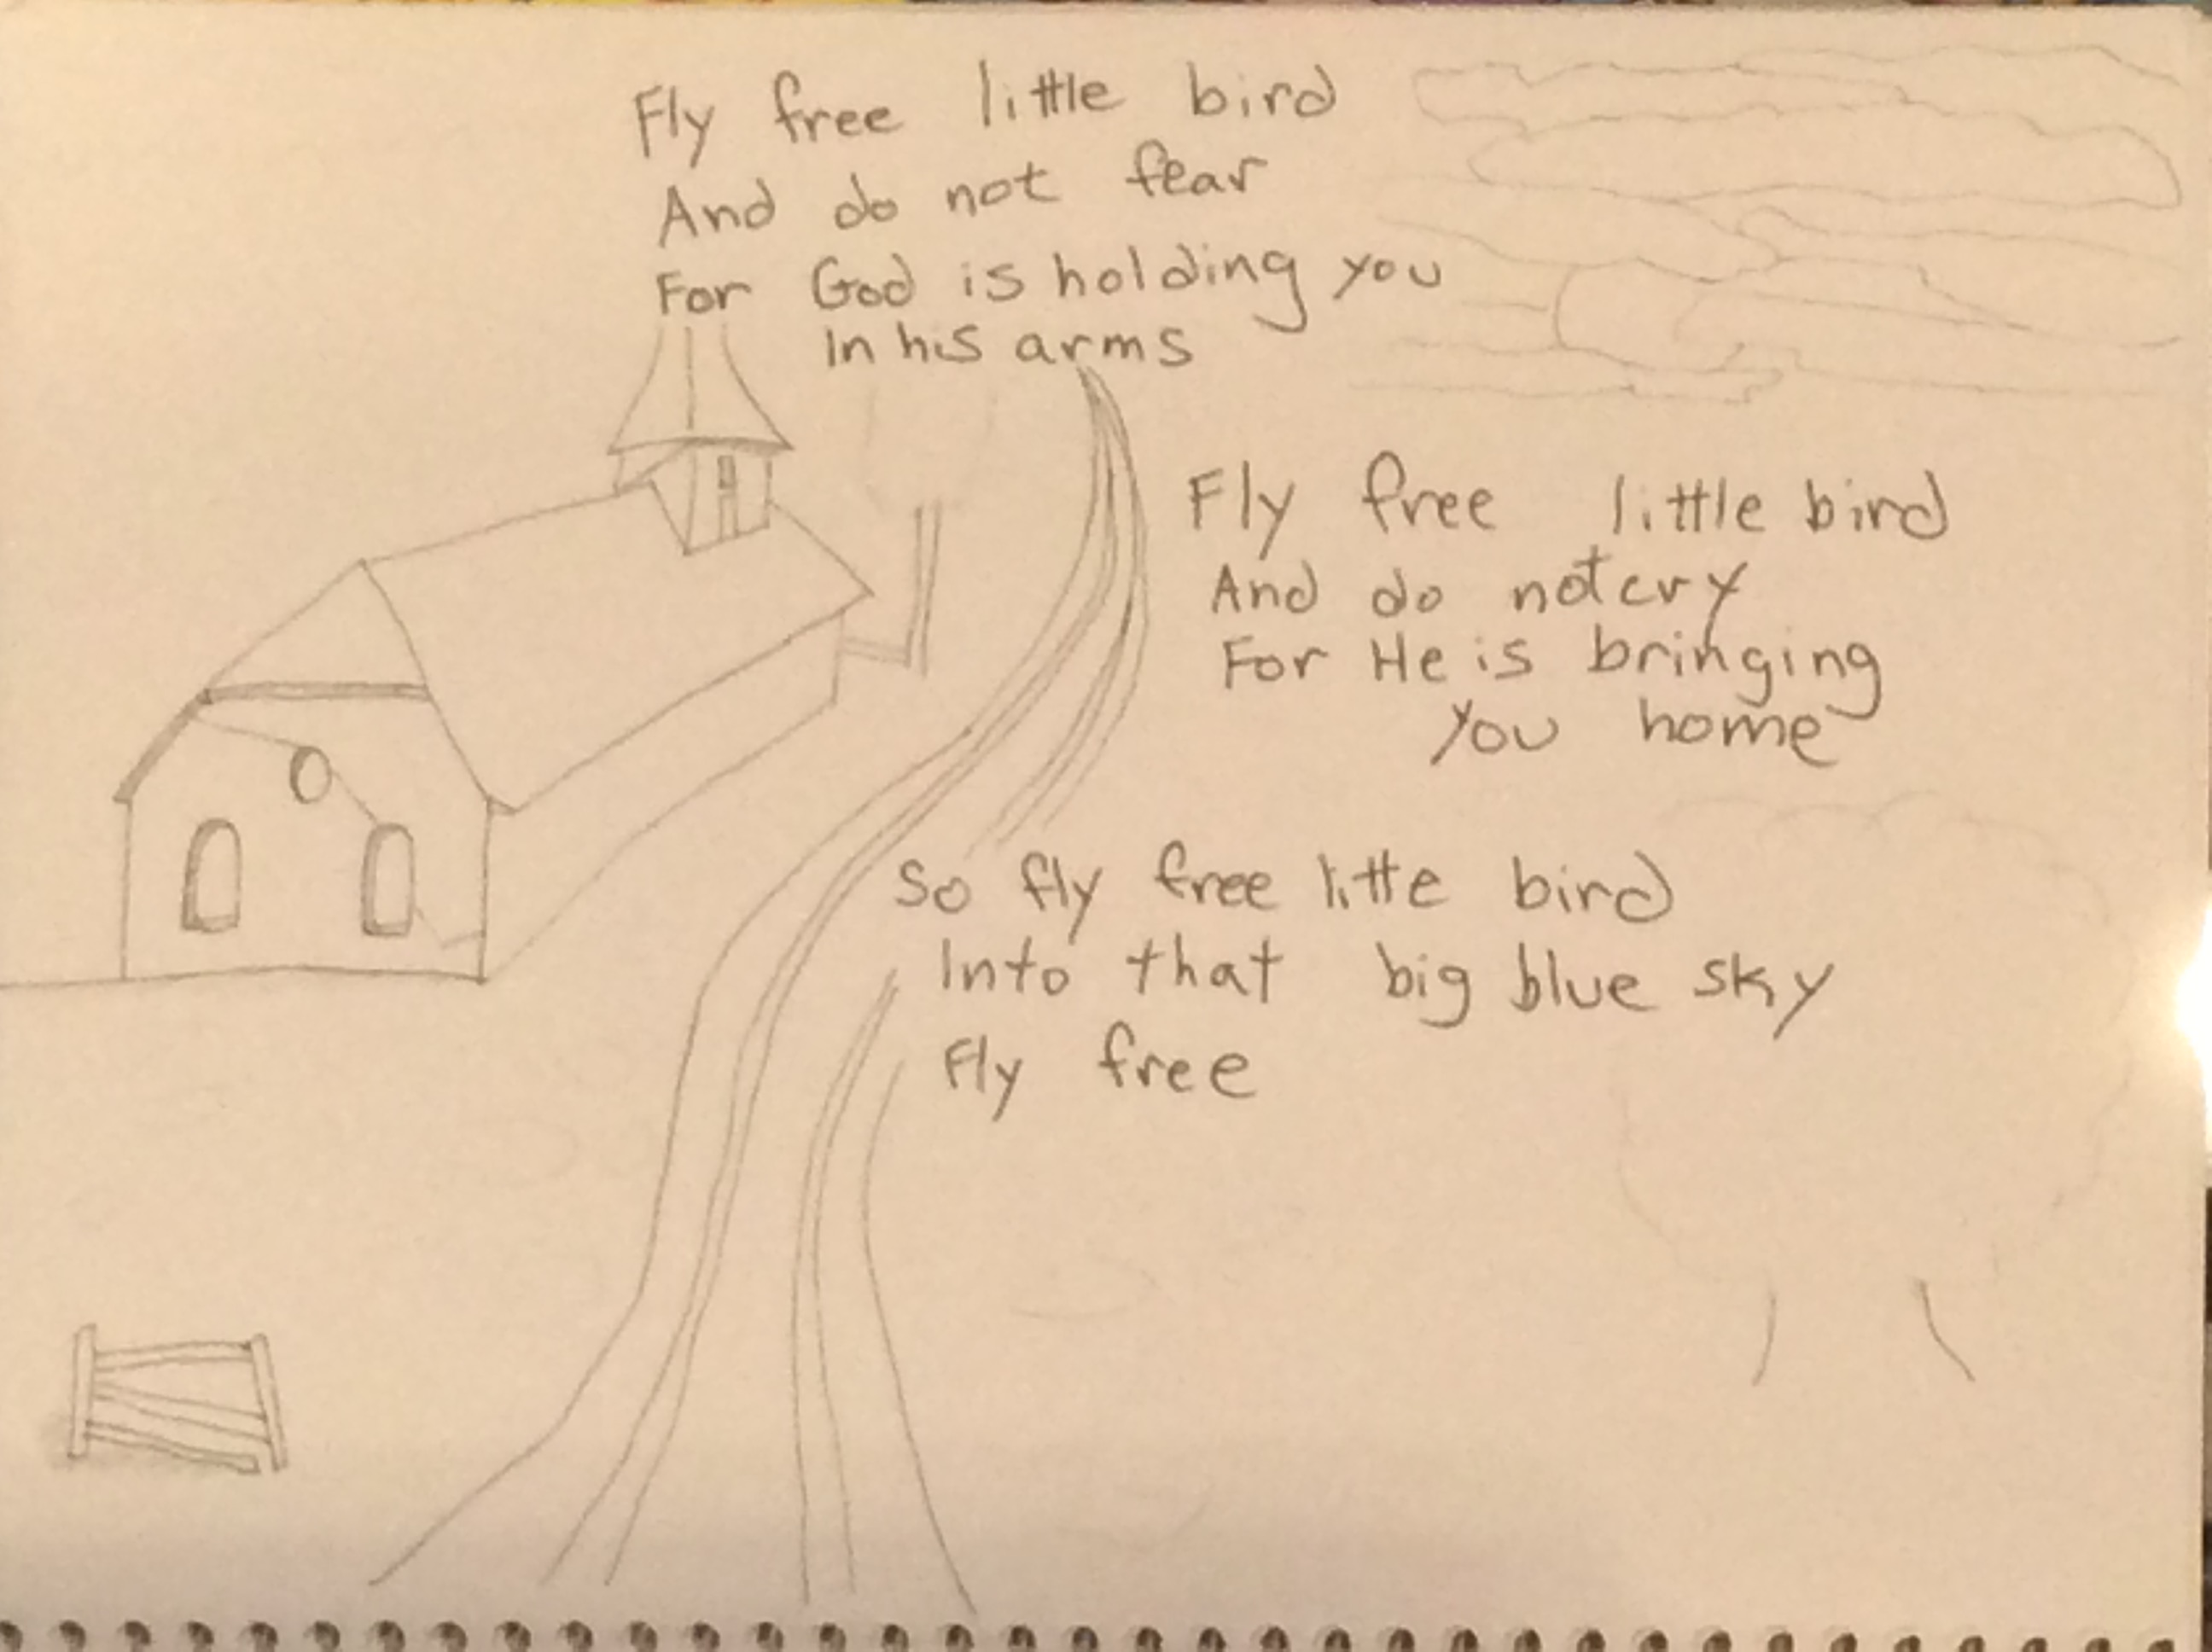 Fly free little bird
And do not fear
For God is holding you
In his arms
Fly free little bird
And do not cry
For He is bringing
you home
So fly free litte bird
Into that big blue sky
Fly free